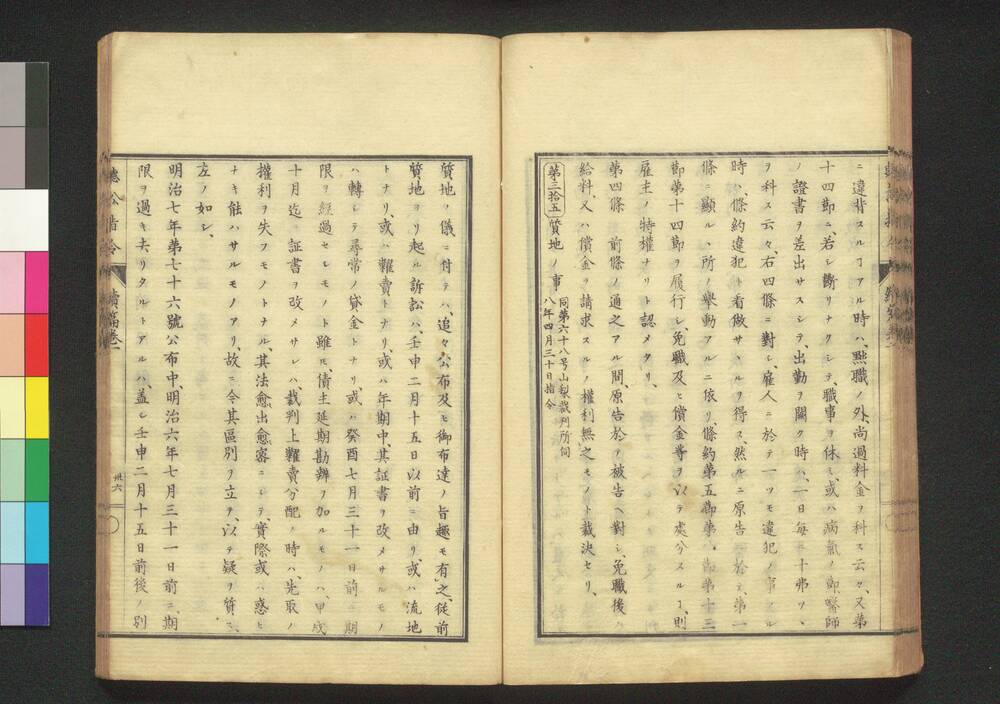 ニ違背スルヿアル時ハ、黜職ノ外、尚過料金ヲ科ス云々、又第
十四節ニ、若シ斷リナクシテ、職事ヲ休ミ、或ハ病氣ノ節醫師
ノ證書ヲ差出サスシテ、出勤ヲ闕ク時ハ、一日毎ニ十弗ツヽ
ヲ科ス云々、右四條ニ對シ、雇人ニ於テ一ツモ違犯ノ事アル
時ハ、條約違犯ト看做サヽルヲ得ス、然ルニ原告ニ於テ、第一
條ニ顯ルヽ所ノ擧動アルニ依リ、條約第五節第八節第十三
節第十四節ヲ履行シ、免職及ヒ償金等ヲ以テ處分スルヿ、則
雇主ノ特權ナリト認メタリ、
第四條 前條ノ通之アル間、原告於テ被告ヘ對シ、免職後ノ
給料、又ハ償金ヲ請求スルノ權利無之モノト裁決セリ、
第三拾五 質地ノ事 同第六十八号山梨裁判所伺
八年四月三十日指令
質地ノ儀ニ付テハ、追々公布及モ御布達ノ旨趣モ有之、從前
質地ヨリ起ル訴訟ハ、壬申二月十五日以前ニ由リ、或ハ流地
トナリ、或ハ糶賣トナリ、或ハ年期中、其証書ヲ改メサルモノ
ハ轉シテ尋常ノ貸金トナリ、或ハ癸酉七月三十一日前ニ期
限ヲ經過セシモノト雖モ、債主延期勘辨ヲ加ルモノハ、甲戌
十月迄ニ証書ヲ改メサレハ、裁判上糶賣分配ノ時ハ、先取ノ
權利ヲ失フモノトナル、其法愈出愈密ニシテ、實際或ハ惑ヒ
ナキ能ハサルモノアリ、故ニ今其區別ヲ立テ、以テ疑ヲ質ス、
左ノ如シ、
明治七年第七十六號公布中、明治六年七月三十一日前ニ、期
限ヲ過キ去リタルトアルハ、蓋シ壬申二月十五日前後ノ別
聽訟指令 續篇卷一 卅六